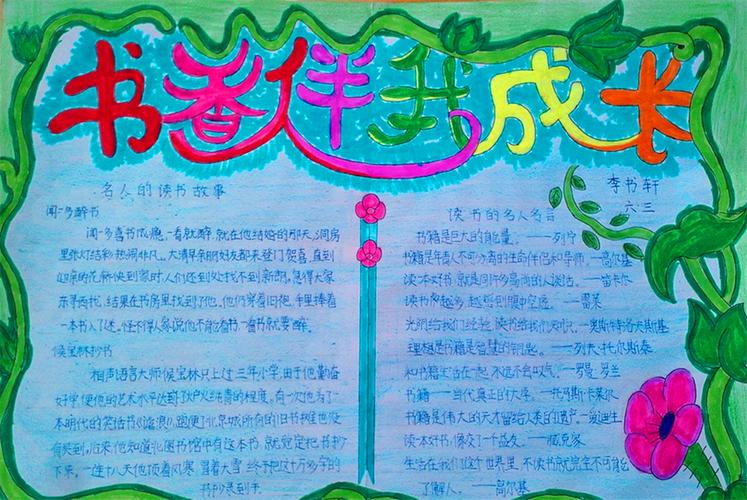 书香伴我成长
名人的读书故事
闻一多醉书
闻一多喜书成瘾,一看就醉,就在他结婚的那天,洞房
里张灯结彩,热闹非凡。大清早亲朋好友都来登门贺喜,直到
迎亲的花轿快到家时,人们还到处找不到新郎。急得大家
东寻西找,结果在书房里找到了他。他仍穿着旧袍,手里捧着
一本书入了迷。怪不得人家说他不能看书,一看就要醉。
侯宝林抄书
相声语言大师侯宝林只上过三年小学,由于他勤奋
好学,使他的艺术水平达到了炉火纯青的程度。有一次,他为了一
本明代的笑话书《谑浪》,跑遍了北京城所有的旧书摊也没
有买到。后来,他知道北图书馆中有这本书,就决定把书抄
下来。一连十八天,他顶着风寒,冒着大雪,终于把这十万多字的
书抄录到手。
李书轩
六.三
读书的名人名言
书籍是巨大的能量。——列宁
书籍是年青人不可分离的生命伴侣和导师。—高尔基
读一本好书,就是同许多高尚的人谈话。—笛卡尔
读书越多,越感到腹中空虚。—雪莱
光明给我们经验,读书给我们知识。—奥斯特洛夫斯基
理想是书籍是智慧的钥匙。—列夫·托尔斯泰
和书籍生活在一起,永远不会叹气。—罗曼·罗兰
书籍——当代真正的大学。—托马斯·卡莱尔
书籍是伟大的天才留给人类的遗产。—爱迪生
读一本好书,像交了一个益友。—臧克家
生活在我们这个世界里,不读书就完全不可能
了解人。—高尔基